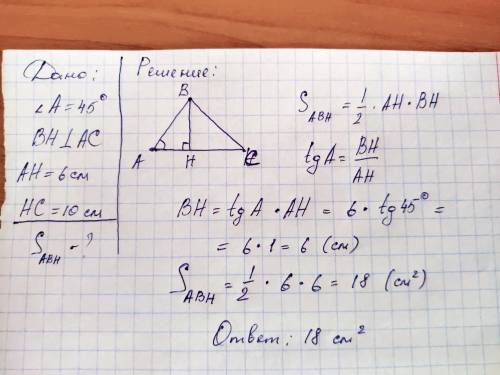 Дано:
∠A = 45°
BH ⊥ AC
AH = 6 см
HC = 10 см
S_ABH - ?
Решение:
B
A H C
S_ABH = 1/2 · AH · BH
tg A = BH/AH
BH = tg A · AH = 6 · tg 45° =
= 6 · 1 = 6 (см)
S_ABH = 1/2 · 6 · 6 = 18 (см²)
Ответ: 18 см²